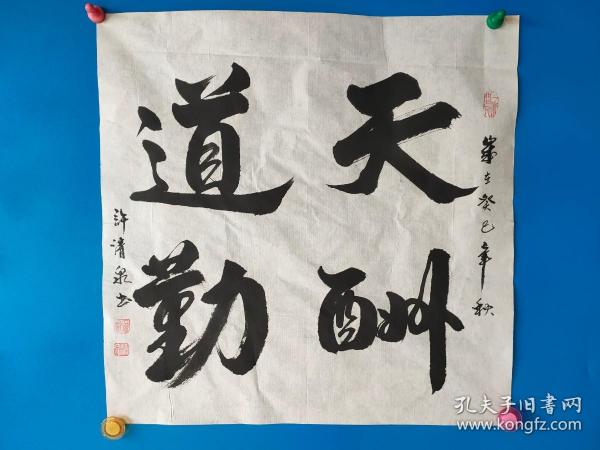 天酬
道勤
歲在癸巳年秋
許清泉书
孔夫子旧書网
www.kongfz.com